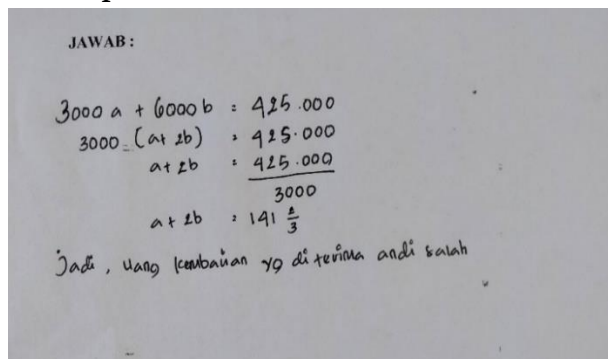 JAWAB :
3000 a + 6000 b = 425.000
3000 = (a+ 2b) = 425.000
a+ 2b = 425.000
3000
a + 2b = 141 2/3
Jadi, uang kembalian yg di terima andi salah